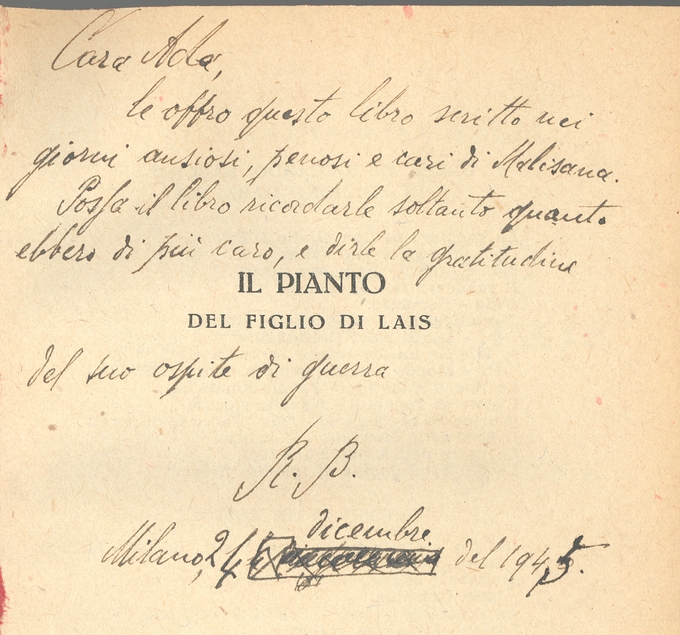 Cara Ada,
le offro questo libro scritto nei
giorni ansiosi, penosi e cari di Malisana.
Possa il libro ricordarle soltanto quanto
ebbero di più caro, e dirle la gratitudine
IL PIANTO
DEL FIGLIO DI LAIS
del suo ospite di guerra
R. B.
dicembre
Milano, 24 del 1945.